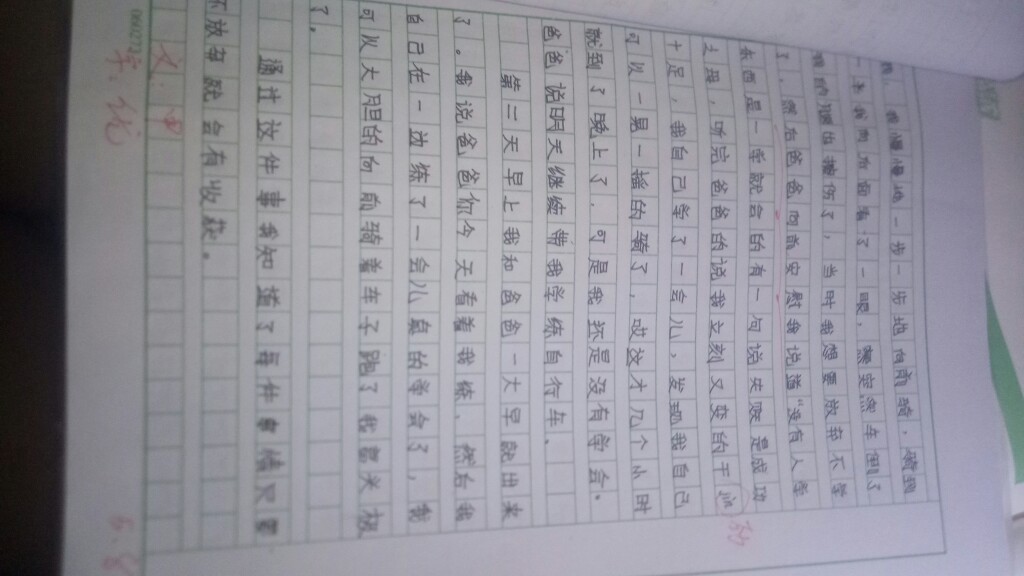 我慢慢地一步一步地向前骑，骑到
一半我向后面看了一眼，突然车倒了
我的腿也擦伤了，当时我想要放弃不学
了，然后爸爸向前安慰我说道“没有人学
东西是一学就会的有一句说失败是成功
之母，听完爸爸的说我立刻又变的干
劲
十足，我自己学了一会儿，发现我自己
可以一晃一摇的骑了，哎这才几个小时
就到了晚上了，可是我还是没有学会。
爸爸说明天继续带我学练自行车、
第二天早上我和爸爸一大早就出来
了。我说爸爸你今天看着我练，然后我
自己在一边练了一会儿真的学会了，我
可以大胆的向前骑着车子跑了我都
了，
通过这件事我知道了每件事情只要
不放弃就会有收获。
文：中
字：优
5.8